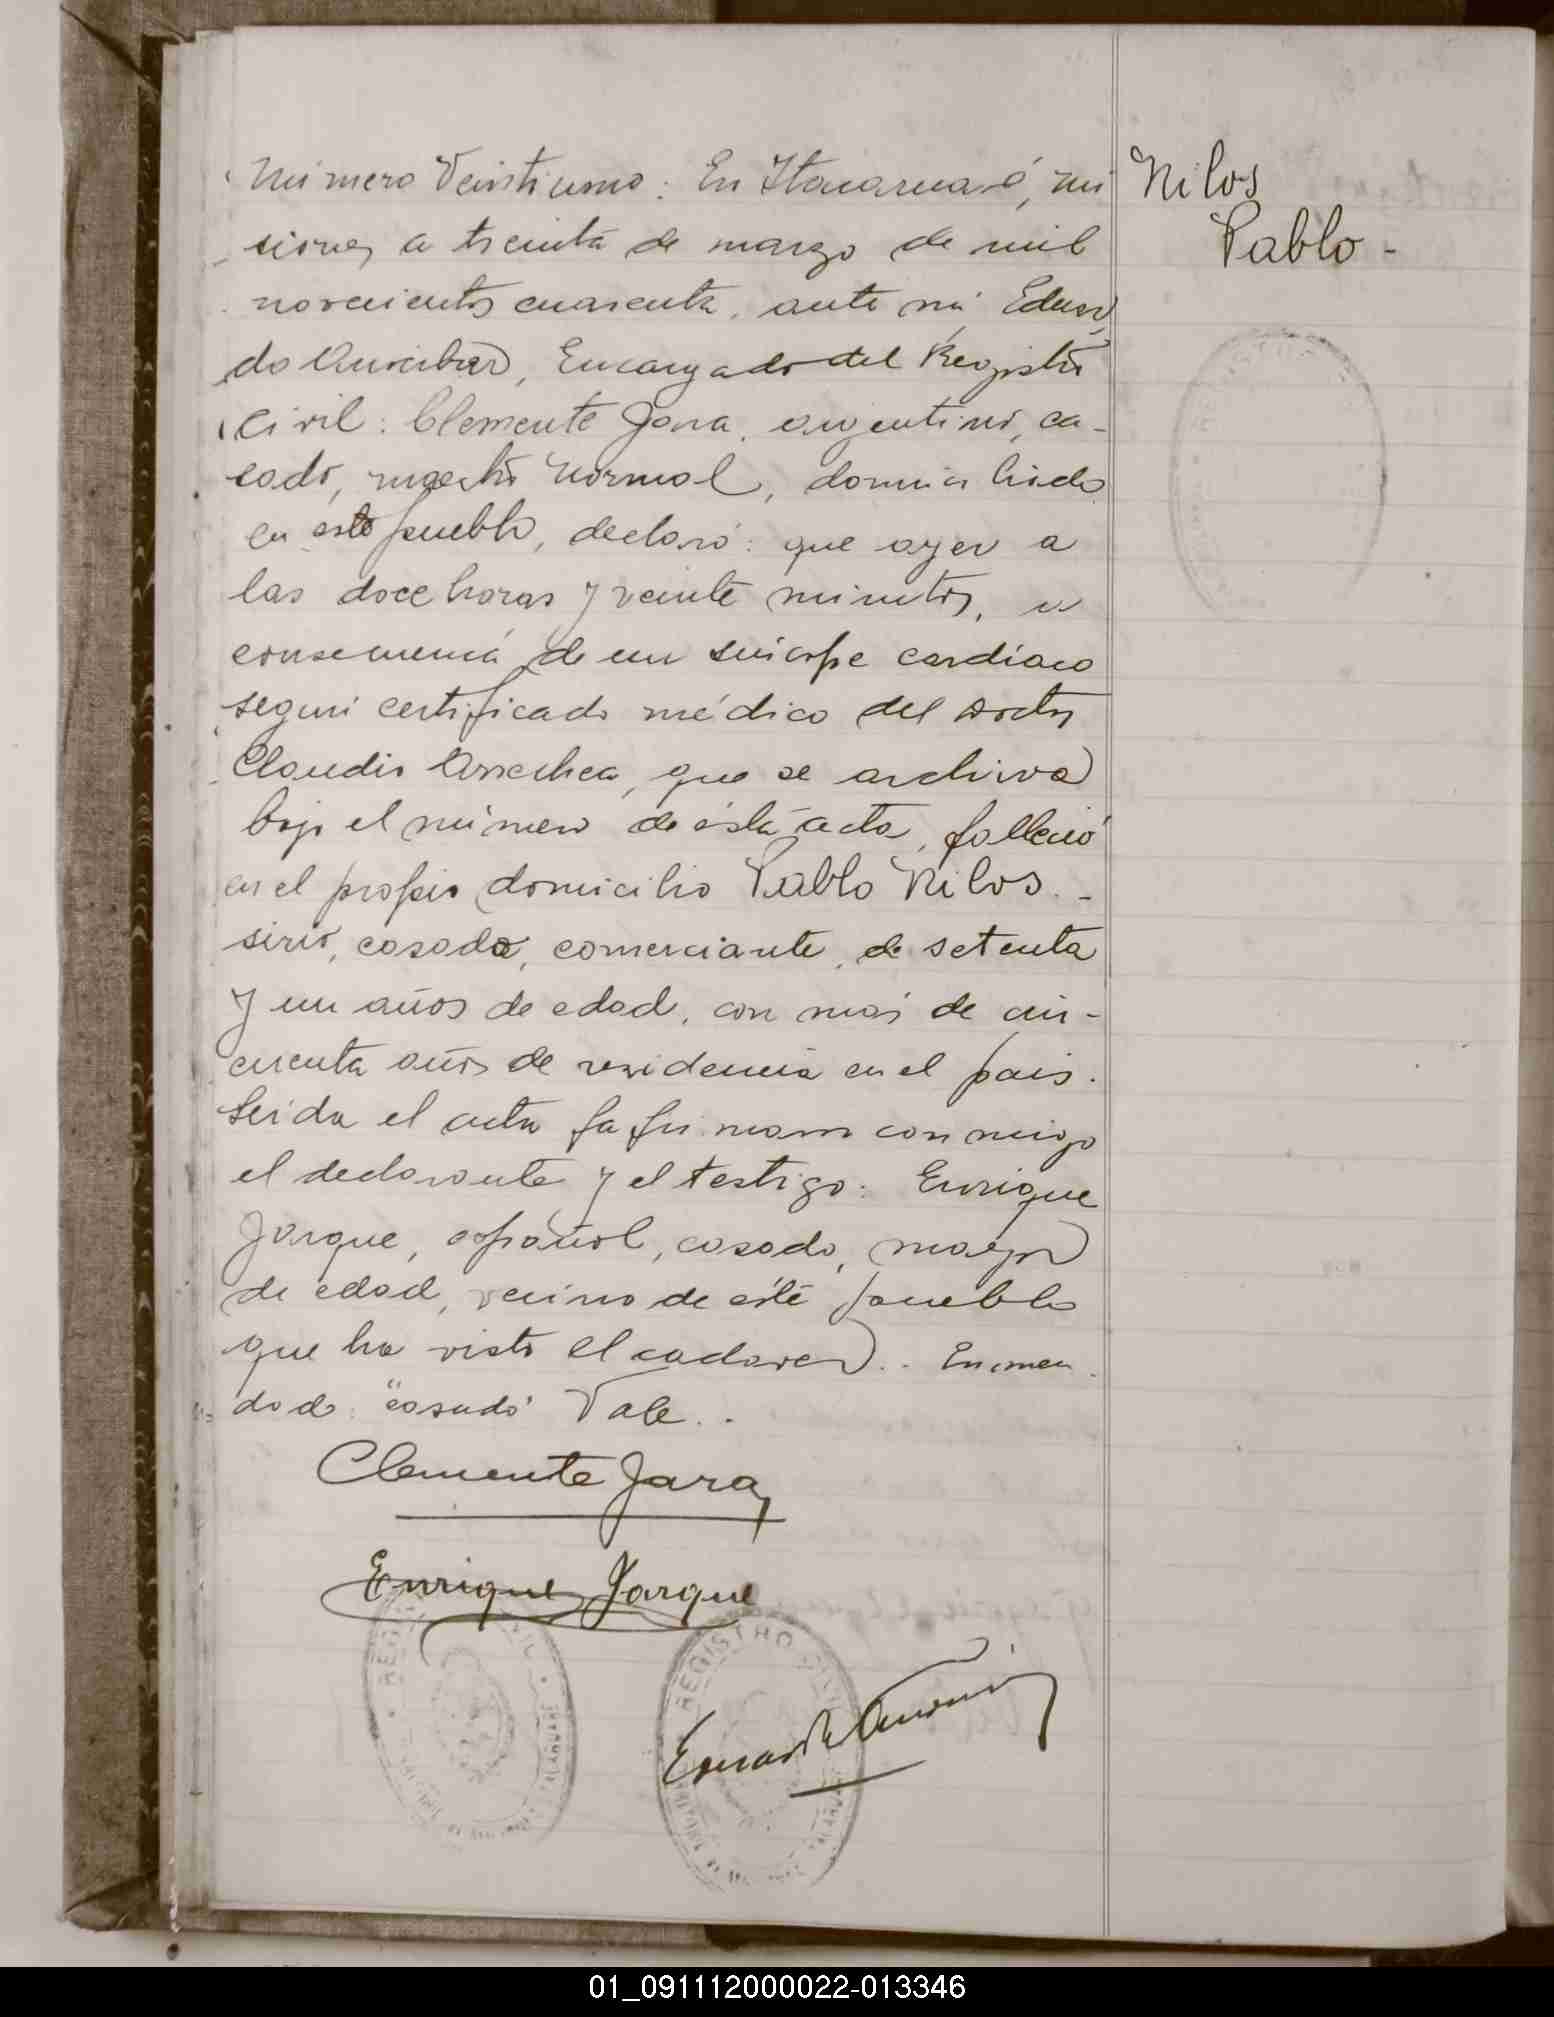 Número Veintiuno: En Itacaruaré, Mi
siones a treinta de marzo de mil
novecientos cuarenta, ante mi Eduar
do, Encargado del Registro
Civil: Clemente Jara, argentino, ca-
sado, maestro Normal, domiciliado
en este pueblo, declaró: que ayer a
las doce horas y veinte minutos, a
consecuencia de un sincope cardiaco
segun certificado médico del doctor
Claudio Arrechea, que se archiva
bajo el número de ésta acta, falleció
en el propio domicilio Pablo Nilos. -
sirio, casado, comerciante, de setenta
y un años de edad, con mas de cin-
cuenta años de residencia en el pais.
Leida el acta la firmaron conmigo
el declarante y el testigo: Enrique
Jarque, español, casado, mayor
de edad, vecino de éste pueblo
que ha visto el cadaver. - Enmen
dado: "casado" Vale. -
Clemente Jara
Enrique Jarque
Nilos
Pablo -
REGISTRO CIVIL
REGISTRO CIVIL
01_091112000022-013346